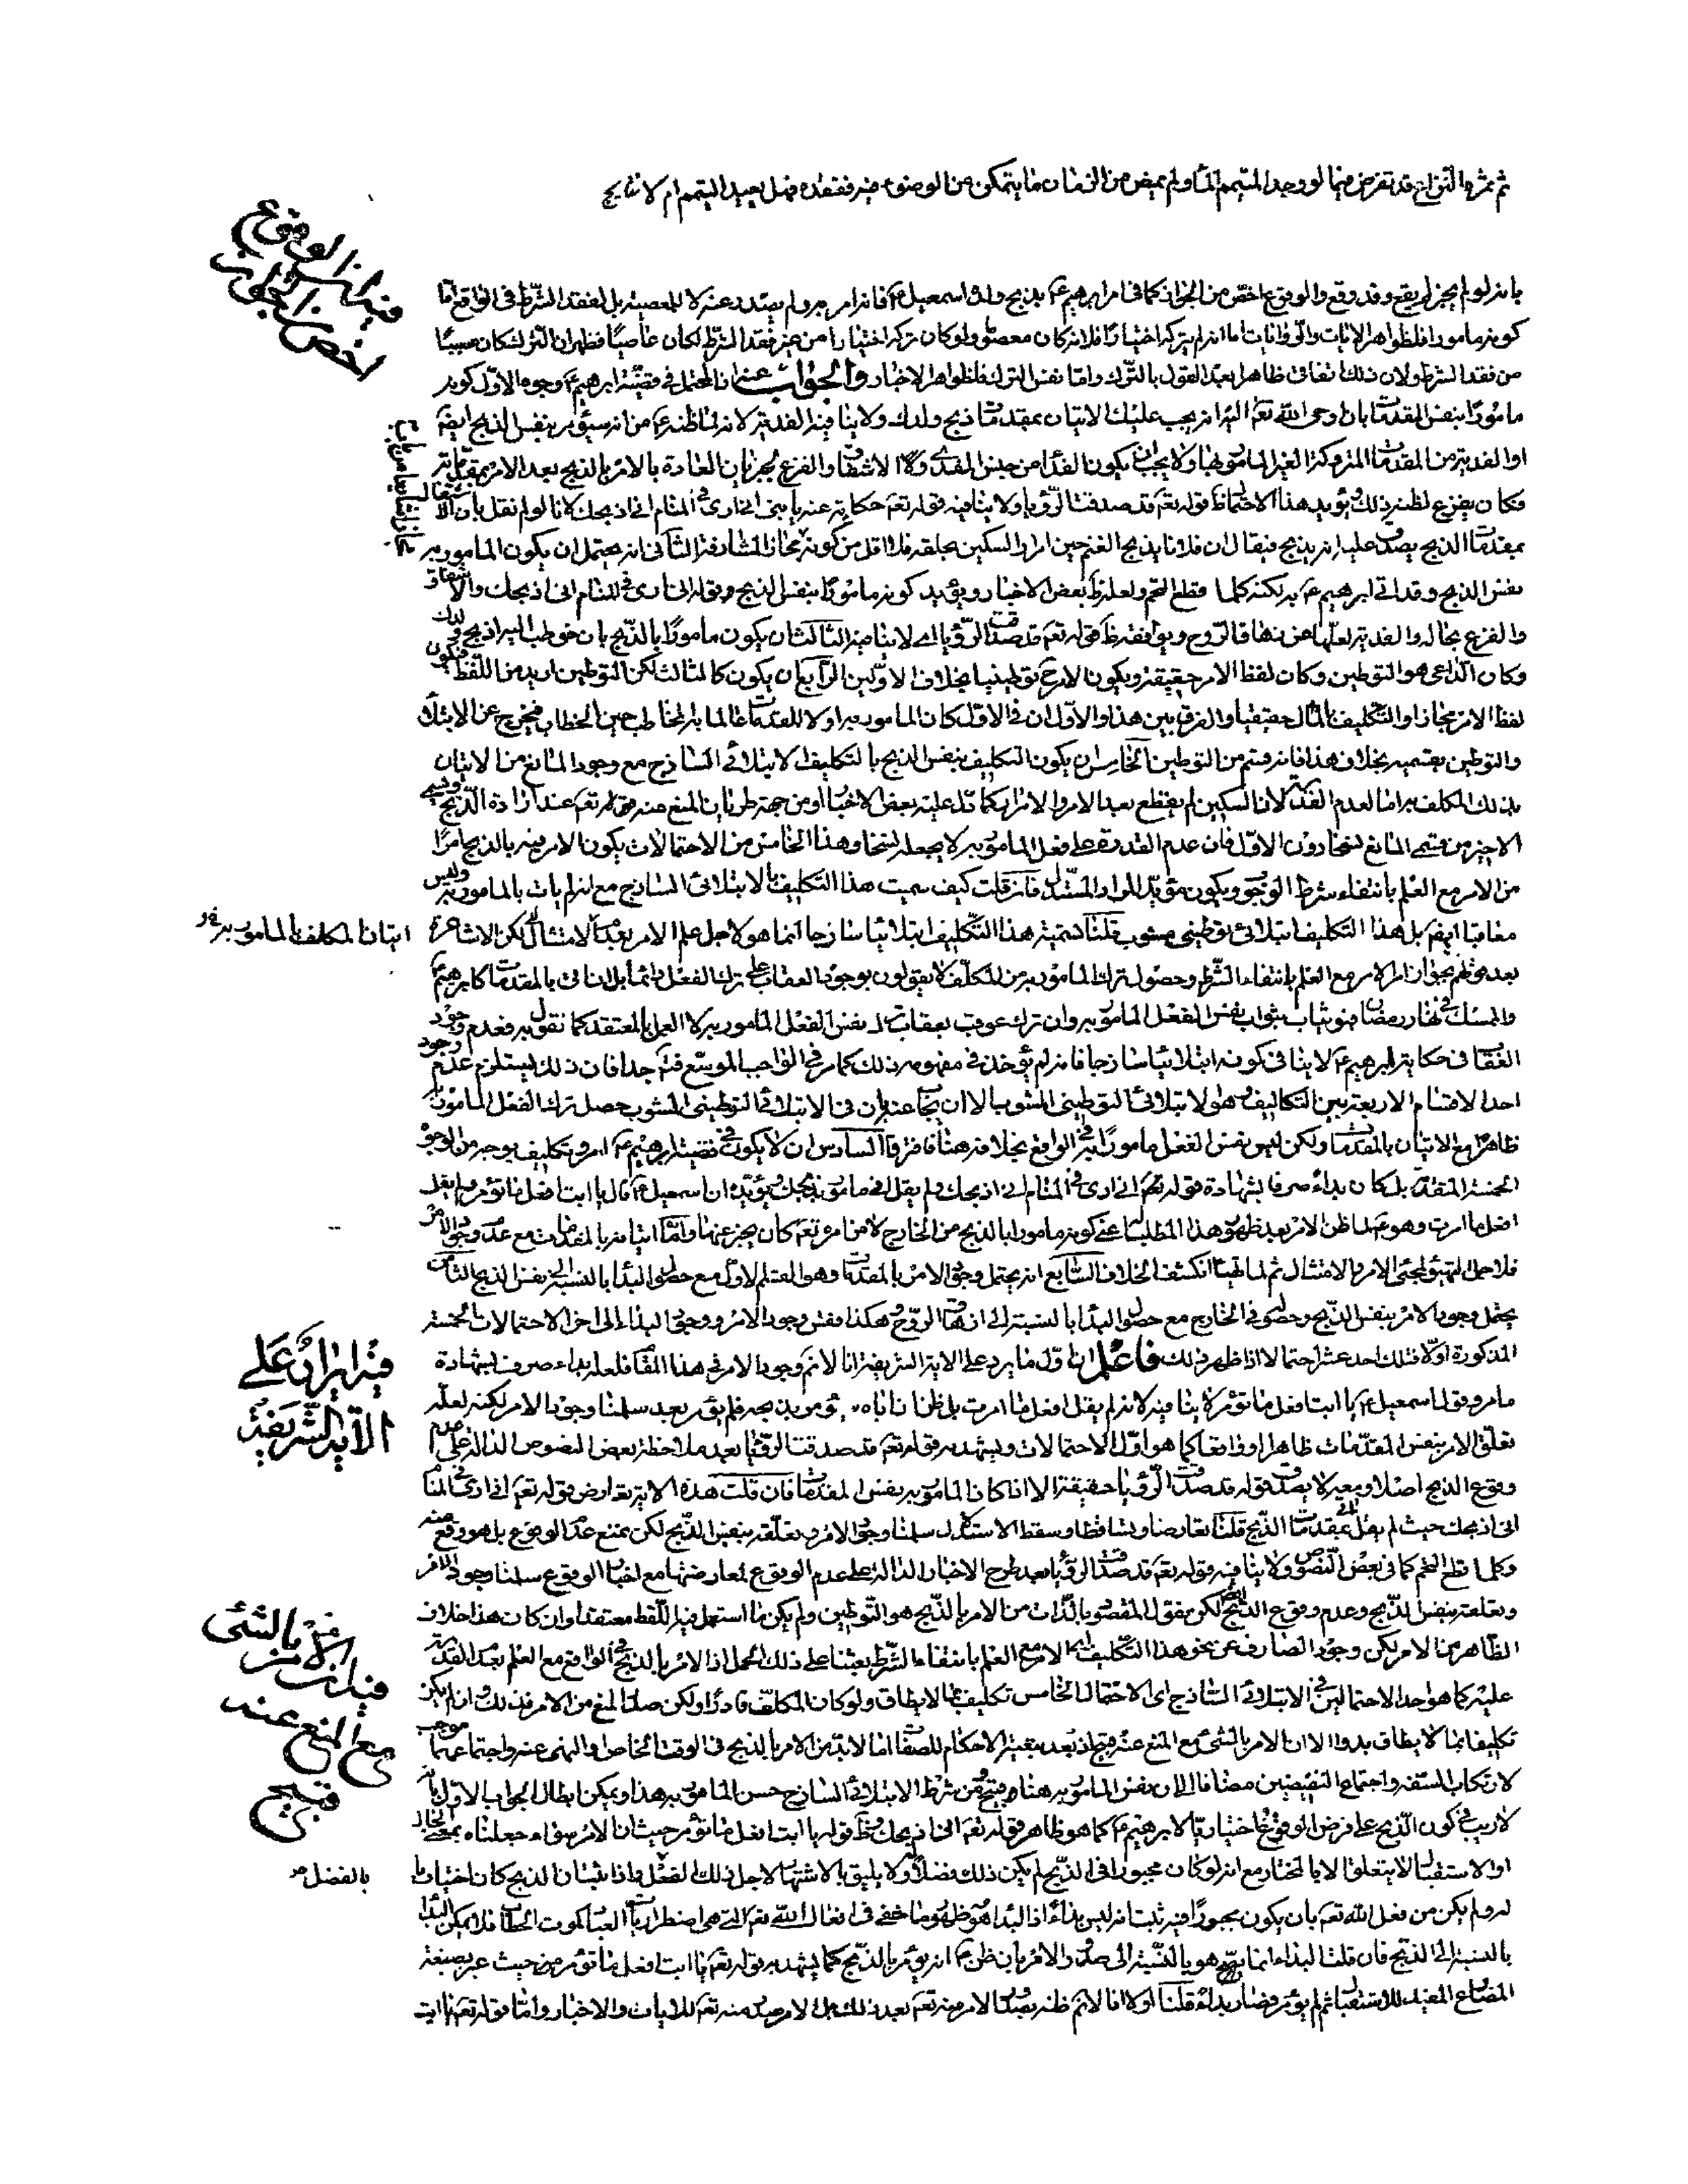 ثم ثمرة النزاع قد تفرض فيما لو وجد المتيمم الماء ولم يمض من الزمان ما يتمكن من الوضوء فيه ففقده فهل يعيد التيمم ام لا
فيه ان الوقوع اخص من الجواز
بانه لو لم يجز لم يقع وقد وقع والوقوع اخص من الجواز كما فى امر ابرهيم ع بذبح ولده اسمعيل ع فانه امر به ولم يصدر عنه لا للمعصية بل لفقد الشرط فى الواقع اما
كونه مامورا فلظواهر الايات والروايات اما انه لم يتركه اختيارا فلانه كان معصوما ولو كان تركه اختيارا من غير فقد الشرط لكان عاصيا فظهر ان الترك كان مسببا
من فقد الشرط ولان ذلك نفاق ظاهرا بعد القول بالترك واما نفس الترك فلظواهر الاخبار والجواب عنه ان المحتمل فى قضية ابرهيم ع وجوه الاول كونه
مامورا بنفس المقدمات بان اوحى الله تعم اليه انه يجب عليك الاتيان بمقدمات ذبح ولدك ولا ينافيه الفدية لانه لما ظنه ع من انه سيؤمر بنفس الذبح ايضم
او الفدية من المقدمات المتروكة الغير المامور بها ولا يجب ان يكون الفداء من جنس المفدى ولا الاشفاق والفزع لجريان العادة بالامر بالذبح بعد الامر بمقدماته
فكان يفزع لظنه ذلك ويؤيد هذا الاحتمال ظ قوله تعم قد صدقت الرؤيا ولا ينافيه قوله تعم حكاية عنه يا بنى انى ارى فى المنام انى اذبحك لانا لو لم نقل بان الاشتغال
بمقدمات الذبح يصدق عليه انه يذبح فيقال ان فلانا يذبح الغنم حين امرار السكين بحلقه فلا اقل من كونه مجاز المشارفة الثانى انه يحتمل ان يكون المامور به
نفس الذبح وقد اتى ابرهيم ع به لكنه كلما قطع التحم ولعله ظ بعض الاخبار ويؤيد كونه مامورا بنفس الذبح وقوله انى ارى فى المنام انى اذبحك والاشفاق
والفزع بحاله والفدية لعلها عن زهاق الروح ويوافقه ظ قوله تعم قد صدقت الرؤيا اى لا ينافيه الثالث ان يكون مامورا بالذبح بان خوطب اليه اذبح ولدك
وكان الداعى هو التوطين وكان لفظ الامر حقيقة ويكون الامر ع توطينيا بخلاف الاولين الرابع ان يكون كالثالث لكن التوطين اريد من اللفظ فيكون
لفظ الامر مجازا والتكليف بالمآل حقيقيا والفرق بين هذا والاول ان فى الاول كان المامور به اولا للمقدمات عالما به المخاطب حين الخطاب فيخرج عن الابتلاء
والتوطين بقسميه بخلاف هذا فانه قسم من التوطين الخامس ان يكون التكليف بنفس الذبح بالتكليف الابتلائى الساذج مع وجود المانع من الاتيان
بذلك المكلف به اما لعدم القدرة لان السكين لم يقطع بعد الامر والامرار كما تدل عليه بعض الاخبار او من جهة طريان المنع عنه من قوله تعم عند ارادة الذبح ويسمى
الاخير من قسمى المانع نسخا دون الاول فان عدم القدرة على فعل المامور به لا يجعله نسخا وهذا الخامس من الاحتمالات يكون الامر فيه بالذبح امرا
من الامر مع العلم بانتفاء شرط الوجوب ويكون مؤيدا لمراد المستدل فان قلت كيف سميت هذا التكليف بالابتلائى الساذج مع انه لم يات بالمامور به وليس
معاقبا ايضم بل هذا التكليف ابتلائى توطينى مشوب قلنا تسمية هذا التكليف ابتلائيا ساذجا انما هو لاجل علم الامر بعدم الامتثال لكن الاشاعرة
بعد قولهم بجواز الامر مع العلم بانتفاء الشرط وحصول ترك المامور به من المكلف لا يقولون بوجود العقاب على ترك الفعل دائما بل ان اتى بالمقدمات كابرهيم ع
والمسك فى نهار رمضان فهو يثاب بثواب نفس الفعل المامور به وان ترك عوقب بعقاب
العقاب فى حكاية ابرهيم ع لا ينافى كونه ابتلائيا ساذجا فانه لم يؤخذ فى مفهومه ذلك كما مر فى الواجب الموسع فتم جدا فان ذلك يستلزم عدم وجود
احد الاقسام الاربعة بين التكاليف وهو الابتلائى التوطينى المشوب الا ان يجاب عنه بان فى الابتلائى التوطينى المشوب حصل ترك الفعل المامور به
ظاهرا مع الاتيان بالمقدمات ولكن ليس نفس الفعل مامورا به فى الواقع بخلافه هنا فافترقا السادس ان لا يكون فى قضية ابرهيم ع امر وتكليف بوجه من الوجوه
الخمسة المتقدمة بل كان بداء صرفا بشهادة قوله تعم انى ارى فى المنام انى اذبحك ولم يقل انى مامور بذبحك ويؤيده ان اسمعيل ع قال يا ابت افعل ما تؤمر ولم يقل
افعل ما امرت
فلاجل التهيؤ لمجئ الامر والامتثال ثم لما تهيأ انكشف الخلاف السابع انه يحتمل وجود الامر بالمقدمات وهو القسم الاول مع حصول البداء بالنسبة الى نفس الذبح الثامن
يحتمل وجود الامر بنفس الذبح وحصوله فى الخارج مع حصول البداء بالنسبة الى ازهاق الروح وهكذا فقس وجود الامر ووجود البداء الى اخر الاحتمالات الخمسة
المذكورة اولا فتلك احد عشر احتمالا اذا ظهر ذلك فاعلم ان اول ما يرد على الاية الشريفة انا لا نم وجود الامر فى هذا المقام فلعله بداء صرف بشهادة
فيه ايراد على
الاية الشريفة
مامر وقول اسمعيل ع يا ابت افعل ما تؤمر لا ينافيه لانه لم يقل افعل ما امرت بل ظن ان اباه يؤمر بذبحه فلم يؤمر بعد سلمنا وجود الامر لكنه لعله
تعلق الامر بنفس المقدمات ظاهرا وواقعا كما هو اول الاحتمالات ويشهد به قوله تعم قد صدقت الرؤيا بعد ملاحظة بعض النصوص الدالة على عدم
وقوع الذبح اصلا وبغيره لا يصدق قوله قد صدقت الرؤيا حقيقة الا اذا كان المامور به نفس المقدمات فان قلت هذه الاية تعارض قوله تعم انى ارى فى المنام
انى اذبحك حيث لم يقل بمقدمات الذبح قلنا تعارضا وتساقطا وسقط الاستدلال سلمنا وجود الامر وتعلقه بنفس الذبح لكن نمنع عدم الوقوع بل هو وقع منه
وكلما قطع التحم كما فى بعض النصوص ولا ينافيه قوله تعم قد صدقت الرؤيا بعد طرح الاخبار الدالة على عدم الوقوع لمعارضتها مع اخبار الوقوع سلمنا وجود الامر
وتعلقه بنفس الذبح وعدم وقوع الذبح ايضم لكن نقول المقصود بالذات من الامر بالذبح هو التوطين ولم يكن ما استعمل فيه اللفظ معتقدا وان كان هذا خلاف
فيه ان الامر بالشئ
مع المنع عنه
قبيح
الظاهر من الامر لكن وجود الصارف عن نحو هذا التكليف اى الامر مع العلم بانتفاء الشرط يعيننا على ذلك الحمل اذ الامر بالذبح فى الواقع مع العلم بعدم القدرة
عليه كما هو احد الاحتمالين فى الابتلائى الساذج اى الاحتمال الخامس تكليف بما لا يطاق ولو كان المكلف قادرا ولكن صدر المنع من الامر فذلك وان لم يكن
تكليفا بما لا يطاق بدوا الا ان الامر بالشئ مع المنع عنه قبيح اذ بعد تبعية الاحكام للصفات اما لابد من الامر بالذبح فى الوقت الخاص والنهى عنه واجتماعهما موجب
لارتكاب السفه واجتماع النقيضين مضافا الى ان نفس المامور به هنا قبيح ومن شرط الابتلائى الساذج حسن المامور به هذا ويمكن ابطال الجواب الاول بانه
لا ريب فى كون الذبح على فرض الوقوع اختياريا لابرهيم ع كما هو ظاهر قوله تعم انى اذبحك وظ قوله يا ابت افعل ما تؤمر حيث ان الامر سواء جعلناه بمعنى الحال
او الاستقبال لا يتعلق الا بالمختار مع انه لو كان مجبورا فى الذبح لم يكن ذلك فضلا له ولا يليق بالاشتهار لاجل ذلك الفعل واذا ثبت ان الذبح كان اختياريا
بالفضل
له ولم يكن من فعل الله تعم بان يكون مجبورا فيه ثبت انه ليس بداء اذ البداء هو ظهور ما خفى فى افعال الله تعم التى هى اضطراريات العباد كموت الخطاب فلا يمكن البداء
بالنسبة الى الذبح فان قلت البداء انما هو بالنسبة الى صدور الامر بان ظن ع انه يؤمر بالذبح كما يشهد به قوله تعم يا ابت افعل ما تؤمر من حيث عبر بصيغة
المضارع المفيد للاستقبال ثم لم يؤمر فصار بداء قلنا اولا انا لا نم ظنه بصدور الامر منه تعم بعد ذلك بل الامر صدر منه تعم للايات والاخبار واما قوله تعم يا ابت